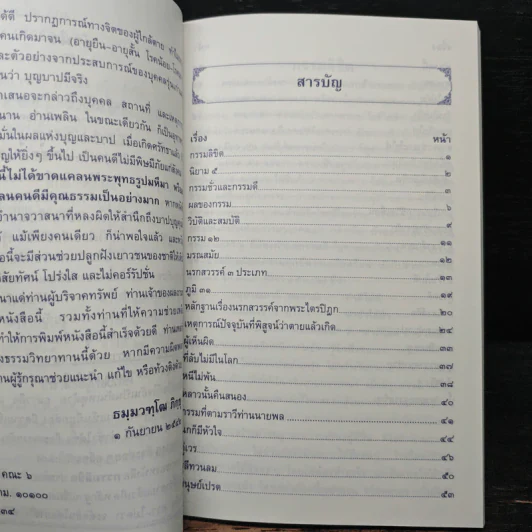 ได้ดี ปรากฏการณ์ทางจิตของผู้ใกล้ตาย
คนเกิดมาจน (อายุยืน-อายุสั้น โรคน้อย-
และตัวอย่างจากประสบการณ์ของบุคคล
ว่า บุญบาปมีจริง
เสนอจะกล่าวถึงบุคคล สถานที่ และ
นาน อ่านเพลิน ในขณะเดียวกัน ก็เป็น
มั่นในผลแห่งบุญและบาป เมื่อเกิดศรัทธา
ให้ยิ่งๆ ขึ้นไป เป็นคนดีไม่มีพิษมีภัยแก่
นี้ไม่ได้ขาดแคลนพระพุทธรูปมหึมา
ลนคนดีมีคุณธรรมเป็นอย่างมาก
อำนาจวาสนาที่หลงผิดให้สำนึกถึงบาปบุญ
แม้เพียงคนเดียว ก็น่าพอใจแล้ว และ
นี้จะมีส่วนช่วยปลูกฝังเยาวชนของชาติ
สัยทัศน์ โปร่งใส และไม่คอร์รัปชั่น
แด่ท่านผู้บริจาคทรัพย์ ท่านเจ้าของ
หนังสือนี้ รวมทั้งท่านที่ให้ความช่วย
ทำให้การพิมพ์หนังสือนี้สำเร็จด้วยดี
ธรรมวิทยาทานนี้ด้วย หากมีความผิด
นผู้รู้กรุณาช่วยแนะนำ แก้ไข หรือท้วงติง
ธมฺมวฑฺโฒ ภิกฺขุ
๑ กันยายน
คณะ ๖
ม. ๑๐๑๐๐
๓๔
สารบัญ
เรื่อง หน้า
กรรมลิขิต ๑
นิยาม ๕ ๒
กรรมชั่วและกรรมดี ๕
ผลของกรรม ๖
วิบัติและสมบัติ ๙
กรรม ๑๒ ๑๑
มรณสมัย ๑๒
นรกสวรรค์ ๓ ประเภท ๑๓
ภูมิ ๓๑ ๑๙
หลักฐานเรื่องนรกสวรรค์จากพระไตรปิฎก ๒๐
เหตุการณ์ปัจจุบันที่พิสูจน์ว่าตายแล้วเกิด ๒๔
ผู้เห็นผิด ๓๓
ที่ลับไม่มีในโลก ๓๗
หนีไม่พ้น ๓๘
เหลาวนั้นคืนสนอง ๔๐
กรรมที่ตามราวีท่านนายพล ๔๑
นกก็มีหัวใจ ๔๔
เวร ๔๕
ทวนลม ๕๐
มนุษย์เปรต ๕๓